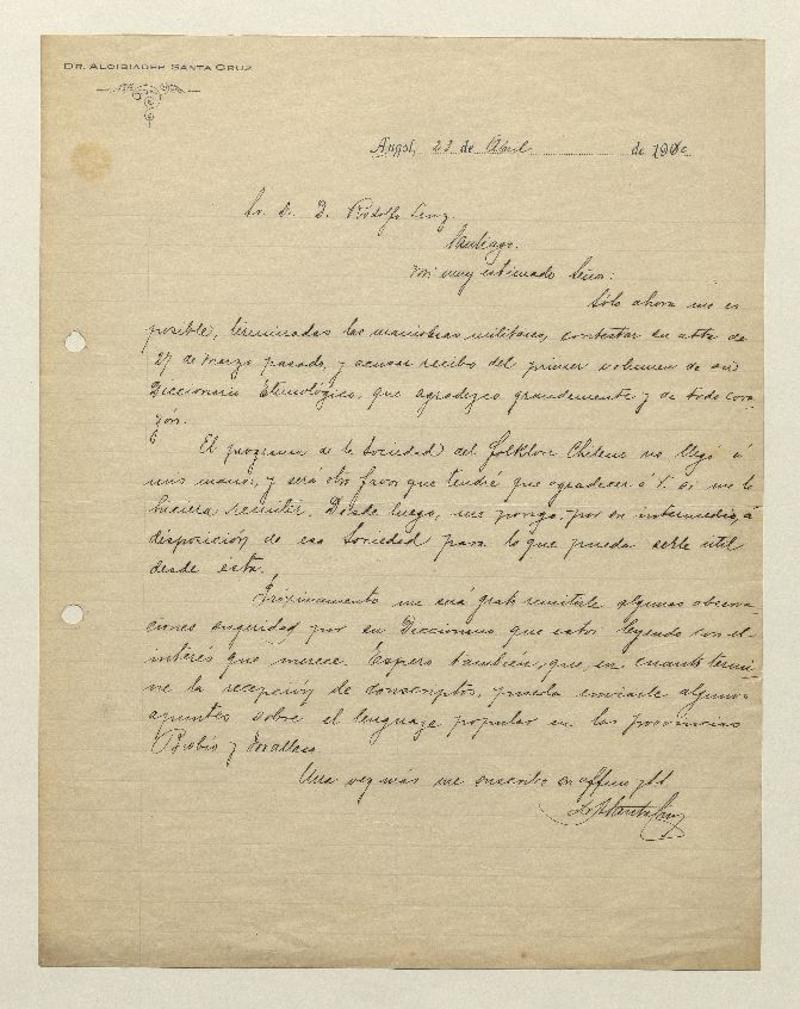 DR. ALCIBIADES SANTA CRUZ
Angol, 22 de Abril de 190
Sr. D. D. Rodolfo Lenz.
Santiago.
Mi muy estimado Señor:
Sólo ahora me es
posible, terminadas las maniobras militares, contestar su atta de
27 de Marzo pasado, y acusar recibo del primer volumen de su
Diccionario Etimológico, que agradezco grandemente y de todo cora-
zón.
El programa de la Sociedad del Folklore Chileno no llegó á
mis manos, y será otro favor que tendré que agradecer á V. si me lo
hiciera remitir. Desde luego, me pongo, por su intermedio, á
disposición de esa Sociedad para lo que pueda serle útil
desde ésta.
Próximamente me será grato remitirle algunas observa-
ciones sugeridas por su Diccionario que estoi leyendo con el
interés que merece. Espero también, que, en cuanto termi-
ne la recepción de conscriptos, pueda enviarle algunos
apuntes sobre el lenguaje popular en las provincias
Biobío y Malleco.
Una vez más me suscribo su affmo y
Santa Cruz